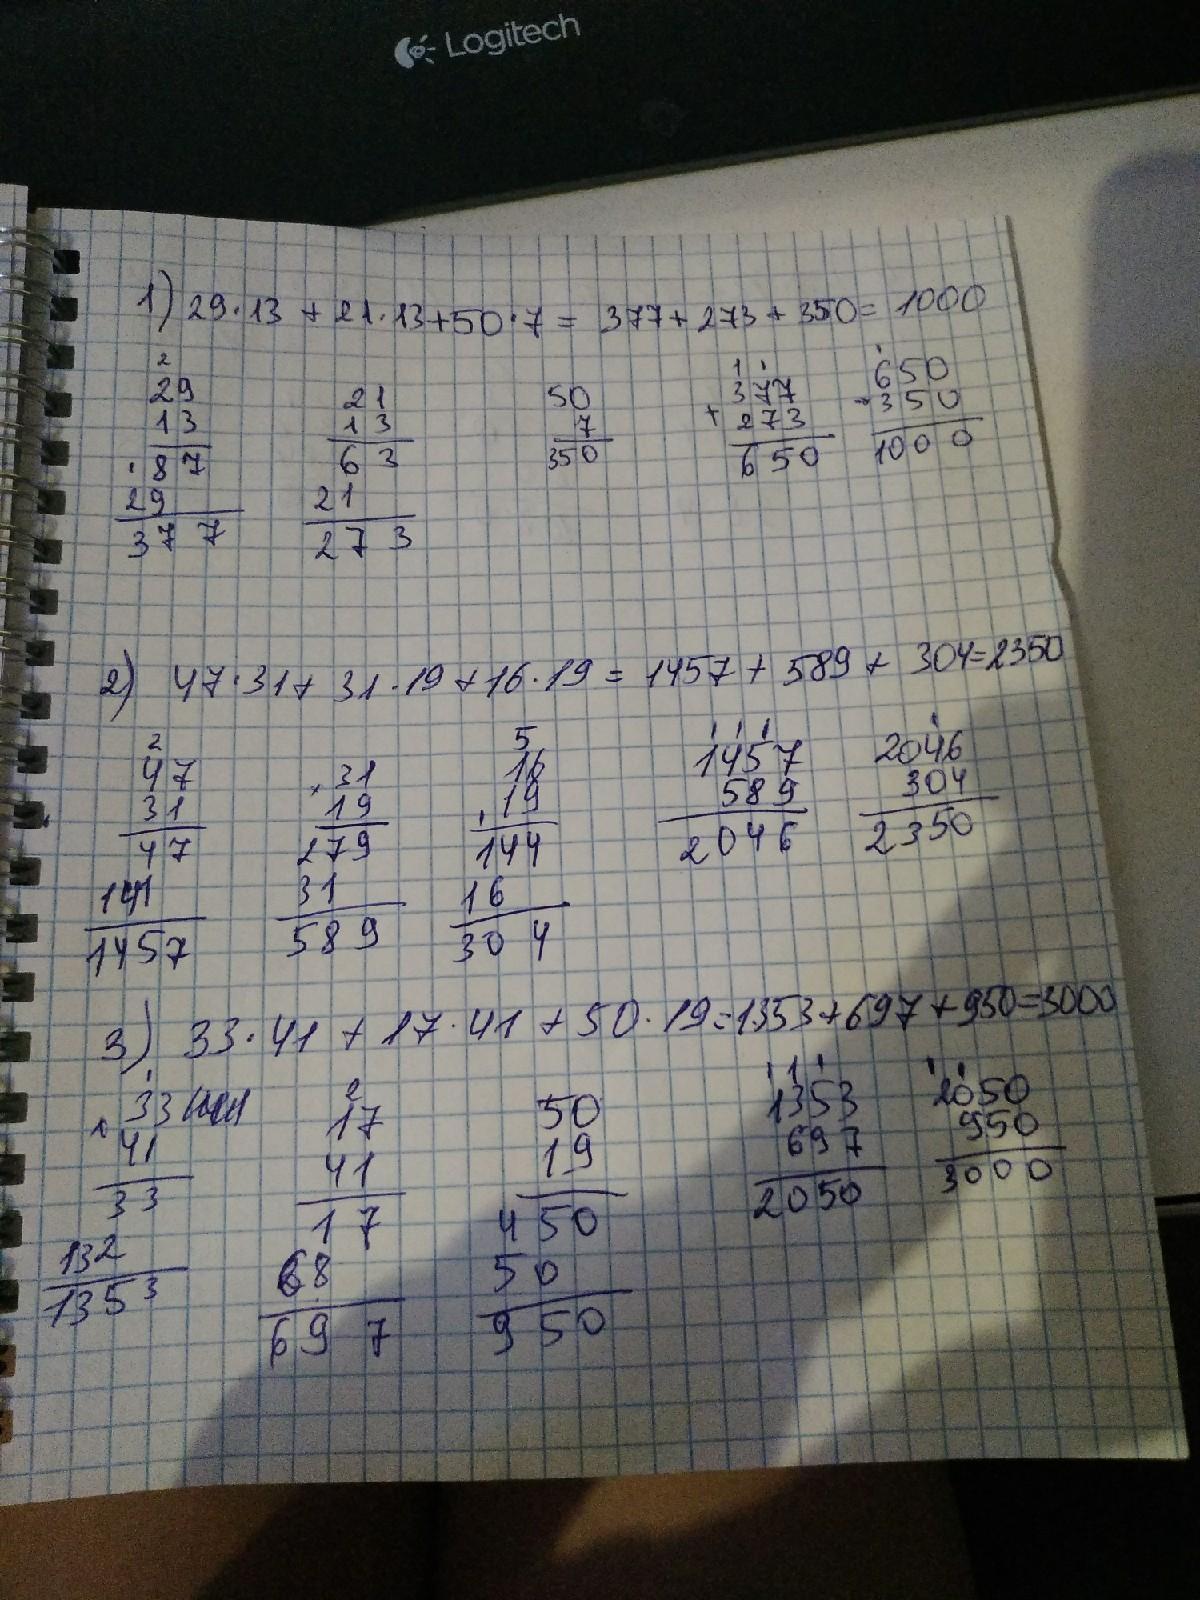 Logitech
1) 29·13 + 21·13 + 50·7 = 377 + 273 + 350 = 1000
2
29 21 50 377 650
13 13 7 + 273 350
87 63 350 650 1000
29 21
377 273
2) 47·31 + 31·19 + 16·19 = 1457 + 589 + 304 = 2350
2 5
47 31 16 1457 2046
31 19 19 589 304
47 279 144 2046 2350
141 31 16
1457 589 304
3) 33·41 + 17·41 + 50·19 = 1353 + 697 + 950 = 3000
2
33 17 50 1353 2050
41 41 19 697 950
33 17 450 2050 3000
132 68 50
1353 697 950